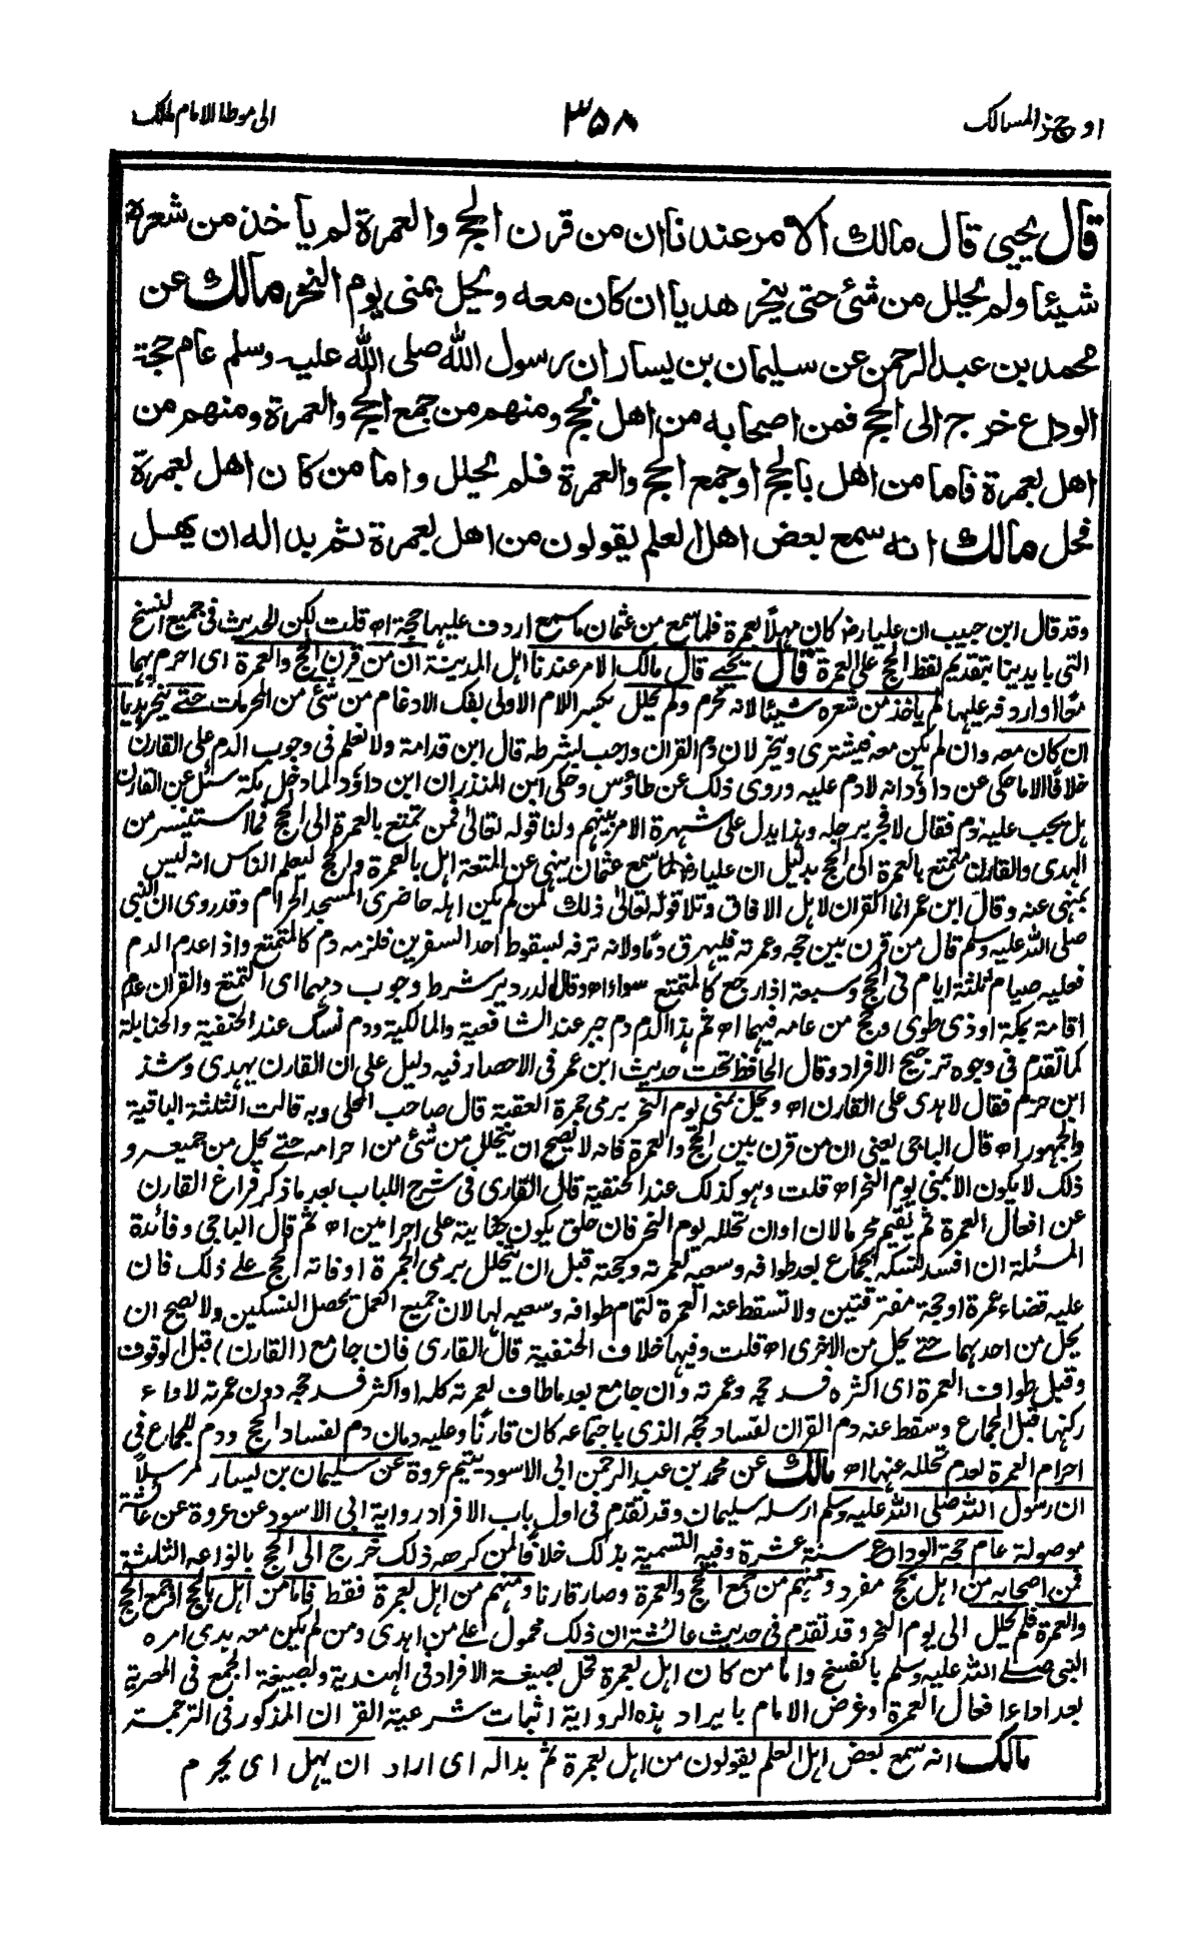 اوجز المسالك
٣٥٨
الى موطا الامام مالك
قال يحيى قال مالك الامر عندنا ان من قرن الحج والعمرة لم يأخذ من شعره
شيئا ولم يحلل من شئ حتى ينحر هديا ان كان معه ويحل بمنى يوم النحر مالك عن
محمد بن عبد الرحمن عن سليمان بن يسار ان رسول الله صلى الله عليه وسلم عام حجة
الوداع خرج الى الحج فمن اصحابه من اهل بحج ومنهم من جمع الحج والعمرة ومنهم من
اهل بعمرة فاما من اهل بالحج او جمع الحج والعمرة فلم يحلل واما من كان اهل بعمرة
فحل مالك انه سمع بعض اهل العلم يقولون من اهل بعمرة ثم بدا له ان يهل
وقد قال ابن حبيب ان عليا رض كان مهلا بعمرة فلما سمع من عثمان ما سمع اردف عليها حجة اه قلت لكن الحديث فى جميع النسخ
التى بايدينا بتقديم لفظ الحج على العمرة قال يحيى قال مالك الامر عندنا اهل المدينة ان من قرن الحج والعمرة اى احرم بهما
معا او اردفه عليها لم ياخذ من شعره شيئا لانه محرم ولم يحلل بكسر اللام الاولى بفك الادغام من شئ من المحرمات حتى ينحر هديا
ان كان معه وان لم يكن معه فيشترى وينحر لان دم القران واجب بشرطه قال ابن قدامة ولا نعلم فى وجوب الدم على القارن
خلافا الا ما حكى عن داؤد انه لا دم عليه وروى ذلك عن طاؤس وحكى ابن المنذر ان ابن داؤد لما دخل مكة سئل عن القارن
هل يجب عليه دم فقال لا فجر برجله وهذا يدل على شهرة الامر بينهم ولنا قوله تعالى فمن تمتع بالعمرة الى الحج فما استيسر من
الهدى والقارن متمتع بالعمرة الى الحج بدليل ان عليا رض لما سمع عثمان ينهى عن المتعة اهل بالعمرة والحج ليعلم الناس انه ليس
بمنهى عنه وقال ابن عمر انما القران لاهل الافاق وتلا قوله تعالى ذلك لمن لم يكن اهله حاضرى المسجد الحرام وقد روى ان النبى
صلى الله عليه وسلم قال من قرن بين حجه وعمرته فليهرق دما ولانه ترفه بسقوط احد السفرين فلزمه دم كالمتمتع واذا عدم الدم
فعليه صيام ثلثة ايام فى الحج وسبعة اذا رجع كالمتمتع سواء اه وقال الدردير شرط وجوب دمهما اى التمتع والقران عدم
اقامة بمكة او ذى طوى وحج من عامه فيهما اه ثم هذا الدم دم جبر عند الشافعية والمالكية ودم نسك عند الحنفية والحنابلة
كما تقدم فى وجوه ترجيح الافراد وقال الحافظ تحت حديث ابن عمر فى الاحصار فيه دليل على ان القارن يهدى وشذ
ابن حزم فقال لا هدى على القارن اه ويحل بمنى يوم النحر برمى جمرة العقبة قال صاحب المحلى وبه قالت الثلثة الباقية
والجمهور اه قال الباجى يعنى ان من قرن بين الحج والعمرة فانه لا يصح ان يتحلل من شئ من احرامه حتى يحل من جميعه و
ذلك لا يكون الا بمنى يوم النحر اه قلت وهو كذلك عند الحنفية قال القارى فى شرح اللباب بعد ما ذكر فراغ القارن
عن افعال العمرة ثم يقيم محرما لان اوان تحلله يوم النحر فان حلق يكون جناية على احرامين اه ثم قال الباجى وفائدة
المسئلة ان افسد نسكه بجماع بعد طوافه وسعيه لعمرته وحجته قبل ان يتحلل برمى الجمرة او فاته الحج على ذلك فان
عليه قضاء عمرة او حجة مفترقتين ولا تسقط عنه العمرة لتمام طوافه وسعيه لها لان جميع العمل يحصل النسكين ولا يصح ان
يحل من احدهما حتى يحل من الاخرى اه قلت وفيها خلاف الحنفية قال القارى فان جامع (القارن) قبل الوقوف
وقبل طواف العمرة اى اكثره فسد حجه وعمرته وان جامع بعد ما طاف لعمرته كله او اكثر فسد حجه دون عمرته لاداء
ركنها قبل الجماع وسقط عنه دم القران لفساد حجه الذى باجتماعه كان قارنا وعليه دمان دم لفساد الحج ودم للجماع فى
احرام العمرة لعدم تحلله عنها اه مالك عن محمد بن عبد الرحمن ابى الاسود يتيم عروة عن سليمان بن يسار مرسلا
ان رسول الله صلى الله عليه وسلم ارسله سليمان وقد تقدم فى اول باب الافراد رواية ابى الاسود عن عروة عن عائشة
موصولة عام حجة الوداع سنة عشرة وفيه التسمية بذلك خلافا لمن كرهه ذلك خرج الى الحج بانواعه الثلثة
فمن اصحابه من اهل بحج مفرد ومنهم من جمع الحج والعمرة وصار قارنا ومنهم من اهل بعمرة فقط فاما من اهل بالحج او جمع الحج
والعمرة فلم يحلل الى يوم النحر وقد تقدم فى حديث عائشة ان ذلك محمول على من اهدى ومن لم يكن معه هدى امره
النبى صلى الله عليه وسلم بالفسخ واما من كان اهل بعمرة فحل بصيغة الافراد فى الهندية وبصيغة الجمع فى المصرية
بعد اداء افعال العمرة وغرض الامام بايراد هذه الرواية اثبات شرعية القران المذكور فى الترجمة
مالك انه سمع بعض اهل العلم يقولون من اهل بعمرة ثم بدا له اى اراد ان يهل اى يحرم